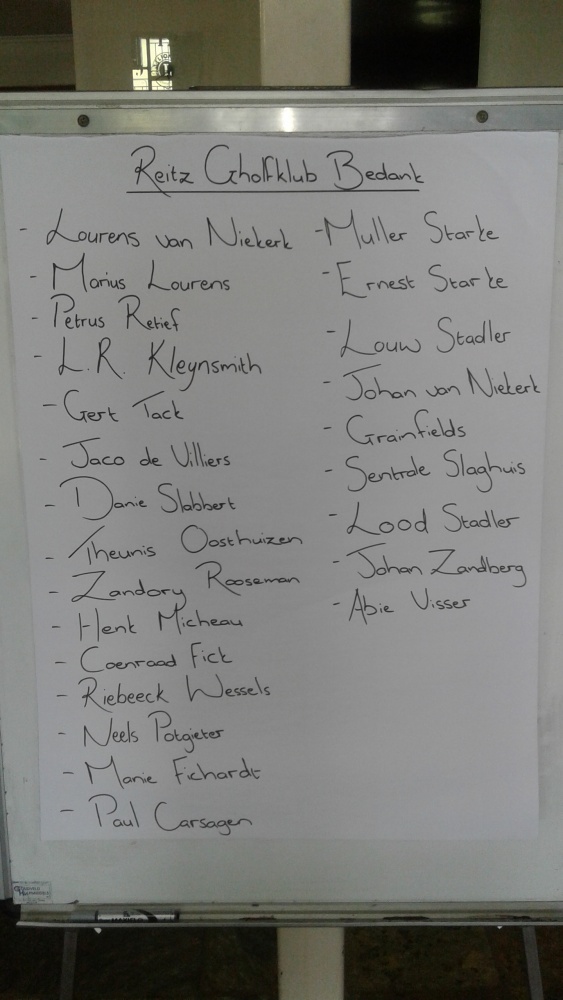 Reitz Gholfklub Bedank
- Lourens van Niekerk
- Marius Lourens
- Petrus Retief
- L.R. Kleynsmith
- Gert Tack
- Jaco de Villiers
- Danie Slabbert
- Theunis Oosthuizen
- Zandory Rooseman
- Henk Micheau
- Coenraad Fick
- Riebeeck Wessels
- Neels Potgieter
- Manie Fichardt
- Paul Carsagen
- Muller Starke
- Ernest Starke
- Louw Stadler
- Johan van Niekerk
- Grainfields
- Sentrale Slaghuis
- Lood Stadler
- Johan Zandberg
- Abie Visser